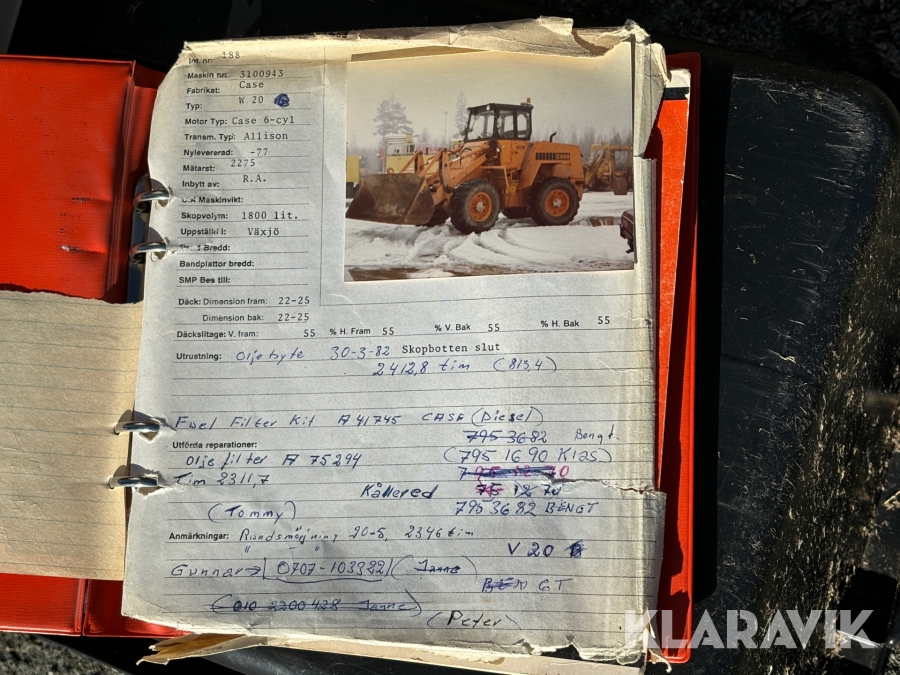 Int. nr: 188
Maskin nr: 3100943
Fabrikat: Case
Typ: W 20
Motor Typ: Case 6-cyl
Transm. Typ: Allison
Nylevererad: -77
Mätarst: 2275
Inbytt av: R.A.
Maskinvikt:
Skopvolym: 1800 lit.
Uppställd i: Växjö
Bredd:
Bandplattor bredd:
SMP Bes till:
Däck: Dimension fram: 22-25
Dimension bak: 22-25
Däckslitage: V. fram: 55 % H. Fram 55 % V. Bak 55 % H. Bak 55
Utrustning: Oljebyte 30-3-82 Skopbotten slut
2412,8 tim (813,4)
Fuel Filter Kit A 41745 CASE (Diesel)
795 3682 Bengt
Utförda reparationer:
Olje filter A 75294 (795 16 90 Klas)
Tim 2311,7
Kållered 12 70
(Tommy) 795 36 82 BENGT
Anmärkningar: Rundsmörjning 20-5, 2346 tim
" " V 20
Gunnar → 0707-103382 (Janne)
BENGT
(010 2200428 Janne)
(Peter)
KLARAVIK